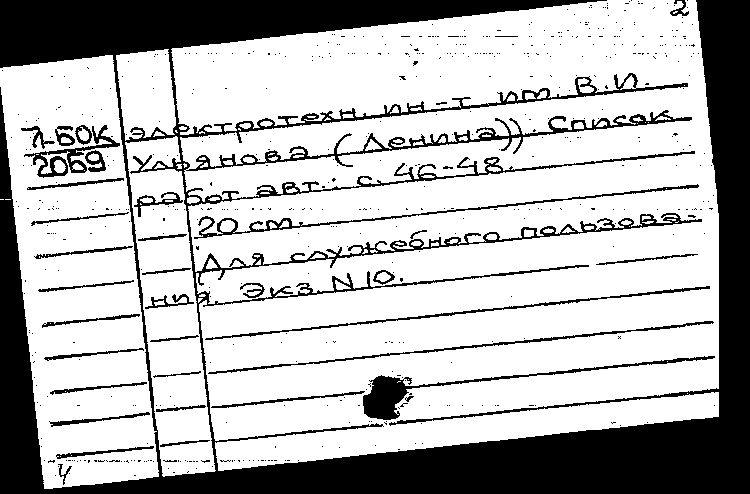 2
Л-БОК электротехн. ин-т им. В.И.
2069 Ульянова (Ленина)). Список
работ авт.: с. 46-48.
20 см.
Для служебного пользова-
ния. Экз. N 10.
4